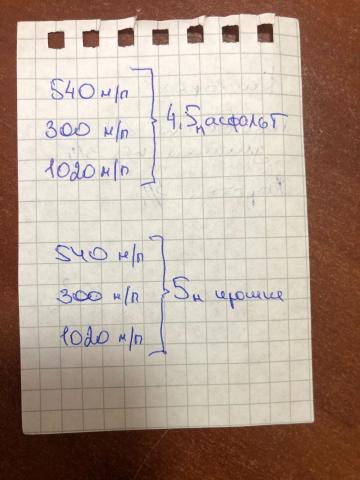 540 м/п
300 м/п 4,5м асфальт
1020 м/п
540 м/п
300 м/п 5м крошка
1020 м/п